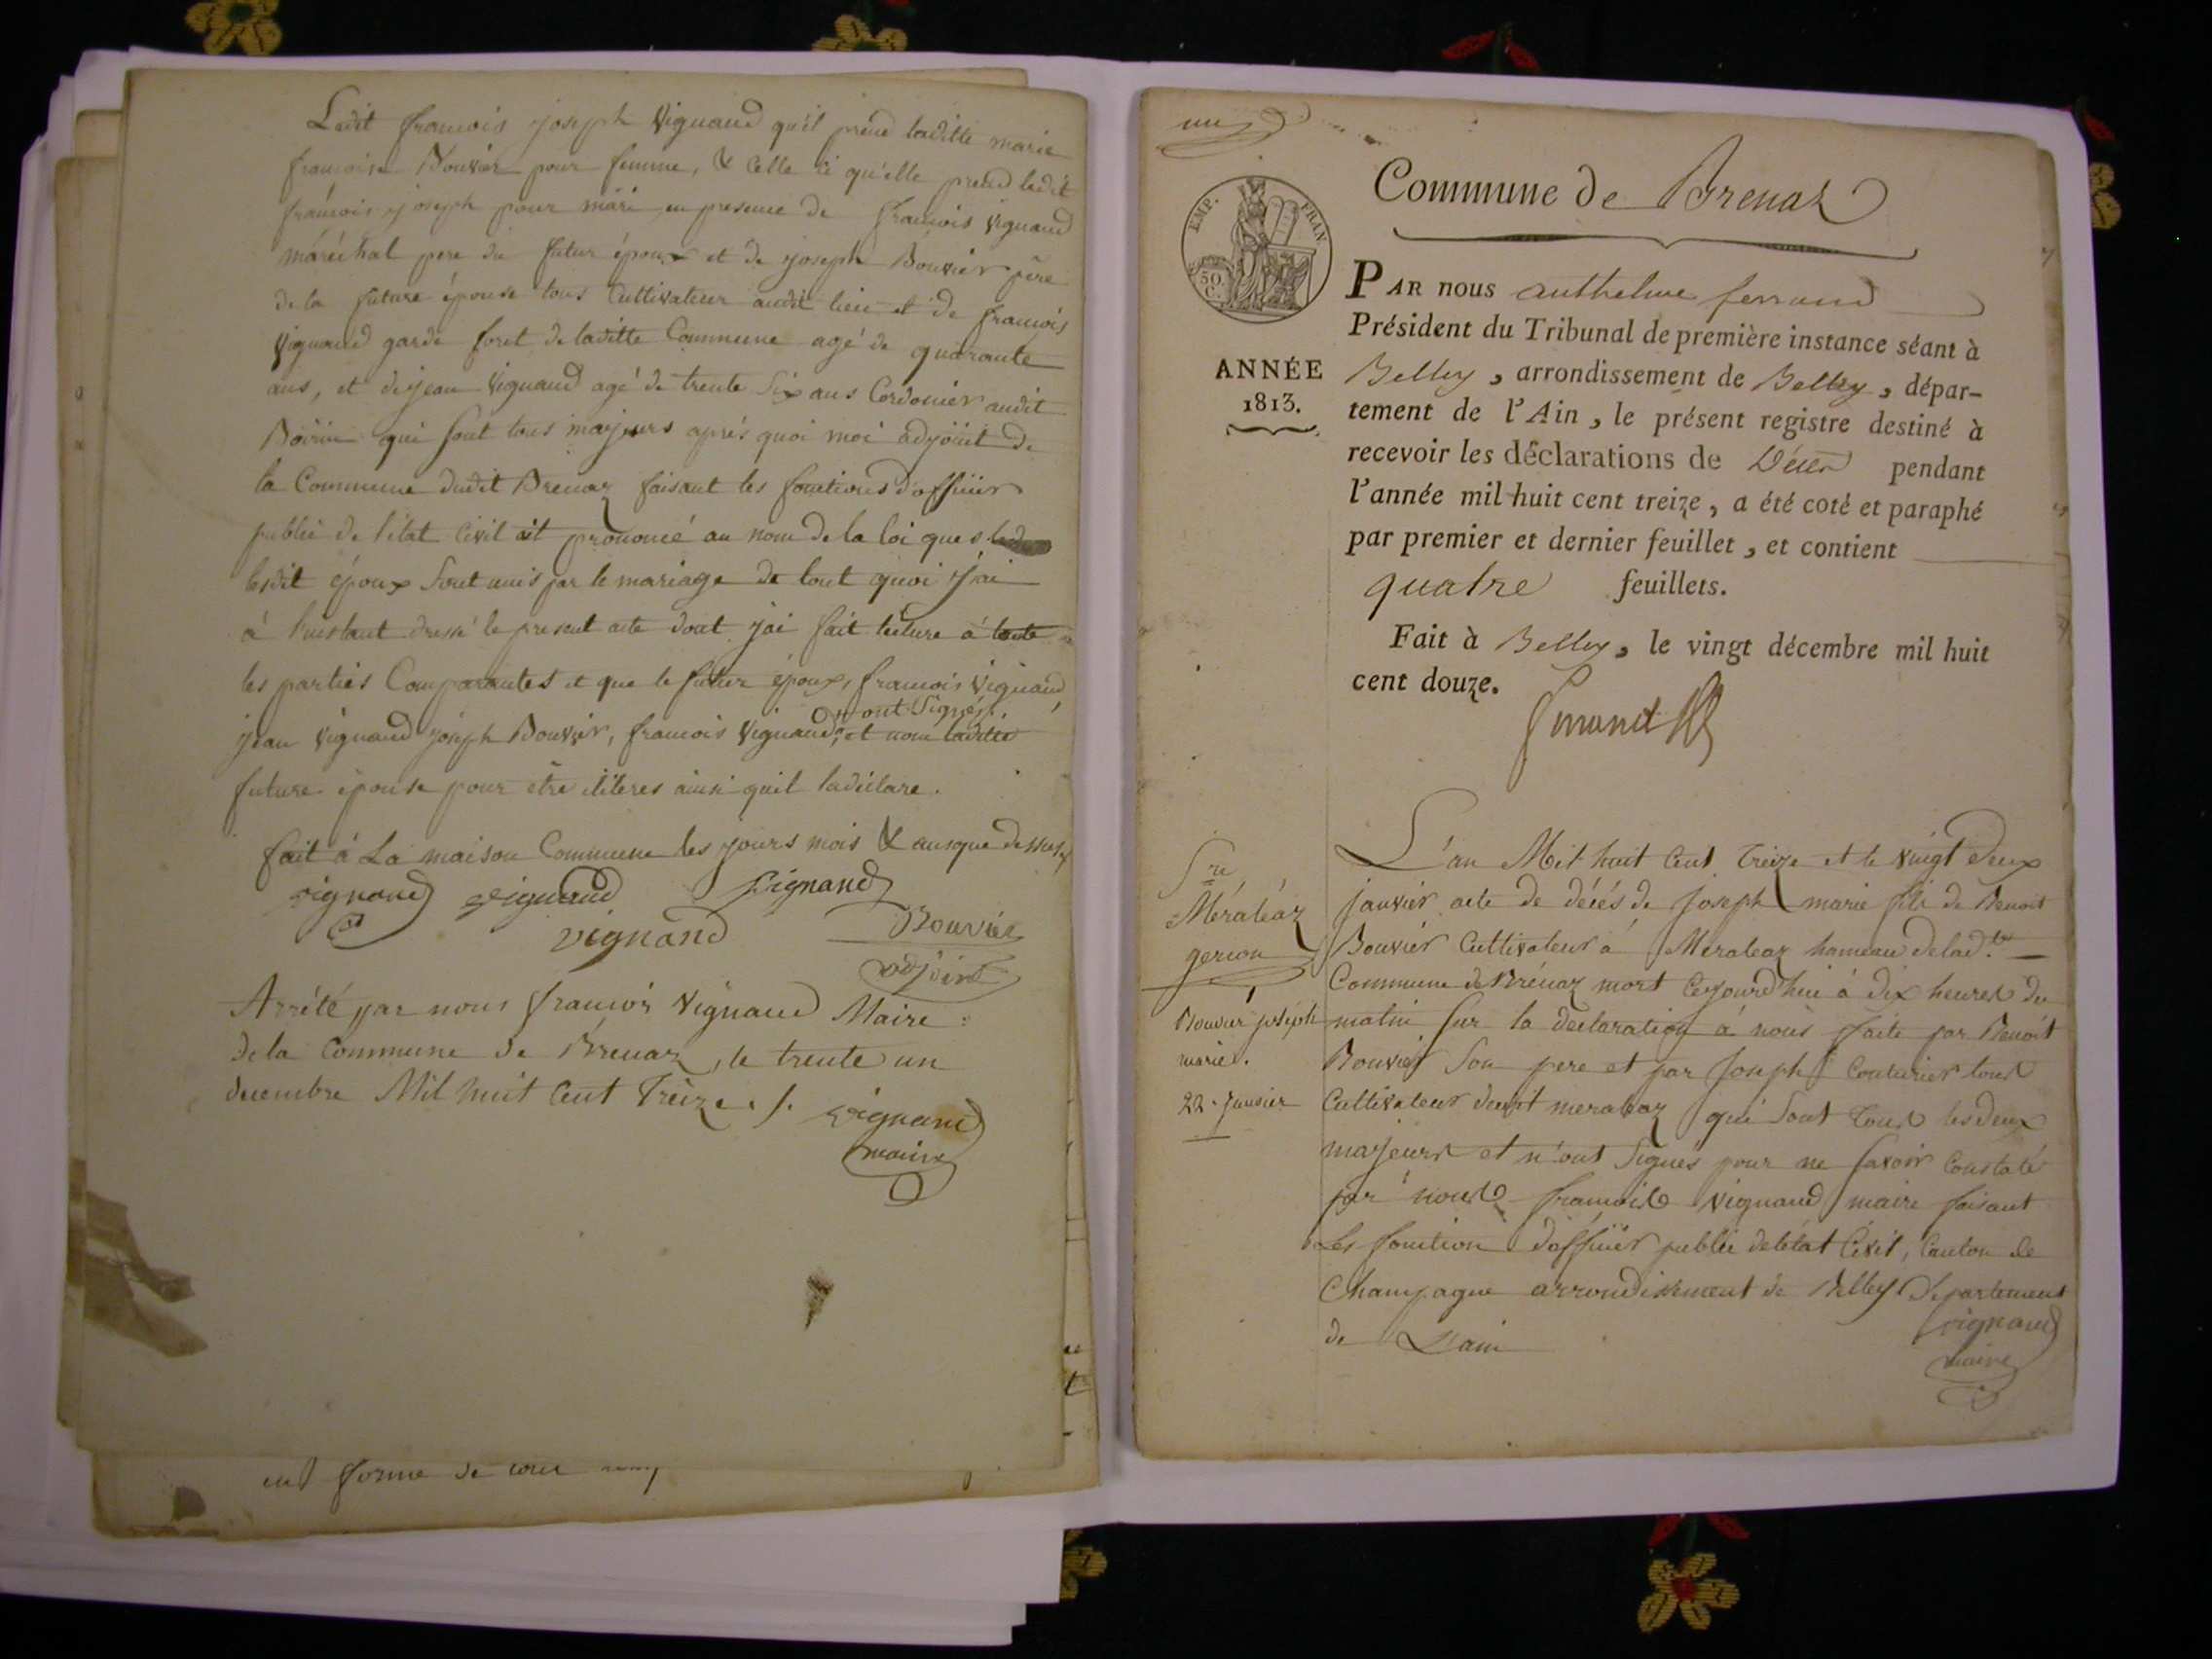 Ledit francois joseph Vignand qu'il prend laditte marie
francoise Bouvier pour femme, & celle ci qu'elle prend ledit
francois joseph pour mari en presence de francois Vignand
maréchal pere du futur époux et de joseph Bouvier père
de la future épouse tous Cultivateur audit lieu et de francois
Vignand garde foret de laditte Commune agé de quarante
ans, et de jean Vignand agé de trente Six ans Cordonier audit
qui sont tous majeurs aprés quoi moi adjoint de
la Commune dudit Brenaz faisant les fonctions d'officier
public de l'état Civil ait prononcé au nom de la loi que
lesdit époux Sont unis par le mariage de tout quoi j'ai
á l'instant dressé le present acte dont j'ai fait lecture á toute
les parties Comparantes et que le futur époux, francois Vignand,
jean Vignand joseph Bouvier, francois Vignand, ont Signés, et non laditte
future épouse pour être iliteres ainsi quil la déclare.
fait á La maison Commune les jours mois & an que dessus
vignand vignand vignand
vignand Bouvier
adjoint
Arrété par nous francois Vignand Maire
de la Commune de Brenaz, le trente un
decembre Mil huit Cent Treize ./. vignand
maire
en forme de
un
Commune de Brenaz
EMP. FRAN.
50 C.
ANNÉE
1813.
PAR nous anthelme ferrand
Président du Tribunal de première instance séant à
Belley, arrondissement de Belley, dépar-
tement de l'Ain, le présent registre destiné à
recevoir les déclarations de Décès pendant
l'année mil huit cent treize, a été coté et paraphé
par premier et dernier feuillet, et contient
quatre feuillets.
Fait à Belley, le vingt décembre mil huit
cent douze.
Méraléaz
1
Bouvier joseph
marie.
22. Janvier
L'an Mil huit Cent Treize et le vingt deux
janvier acte de décés de Joseph marie fils de Benoit
Bouvier Cultivateur á Meraleaz hameau de lad.te
Commune de Brénaz mort Cejourd'hui á dix heures du
matin Sur la declaration á nous faite par Benoit
Bouvier Son pere et par Joseph Couturier tous
Cultivateur dudit meraleaz qui Sont Tous les deux
majeurs et n'ont Signés pour ne Savoir Constaté
par nous francois Vignand maire faisant
Les fonction d'officier public de l'état Civil, Canton de
Champagne arrondissement de Belley Departement
de L'ain
vignand
maire